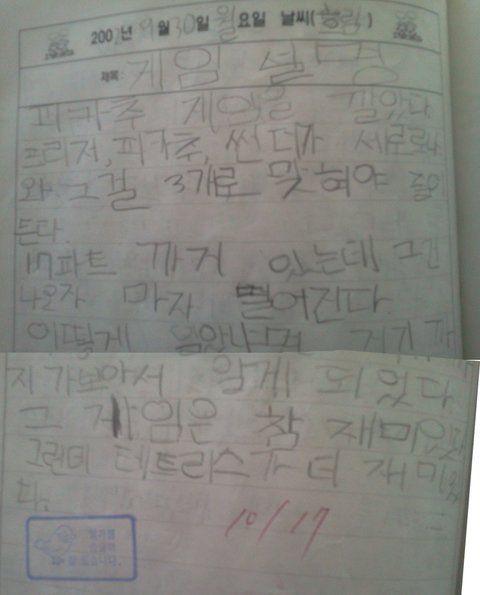 2002년 9월 30일 월요일 날씨(흐림)
제목: 게임 설명
피카츄 게임을 깔았다
프리저, 피카츄, 썬더가 세로로 나
와. 그걸 3개로 맞혀야
든다.
17파트 까지 있는데 그건
나오자 마자 떨어진다
이떻게 알았냐면 거기 까
지 가보아서 알게 되었다
그 게임은 참 재미있다
그런데 테트리스가 더 재미있
다.
10/17